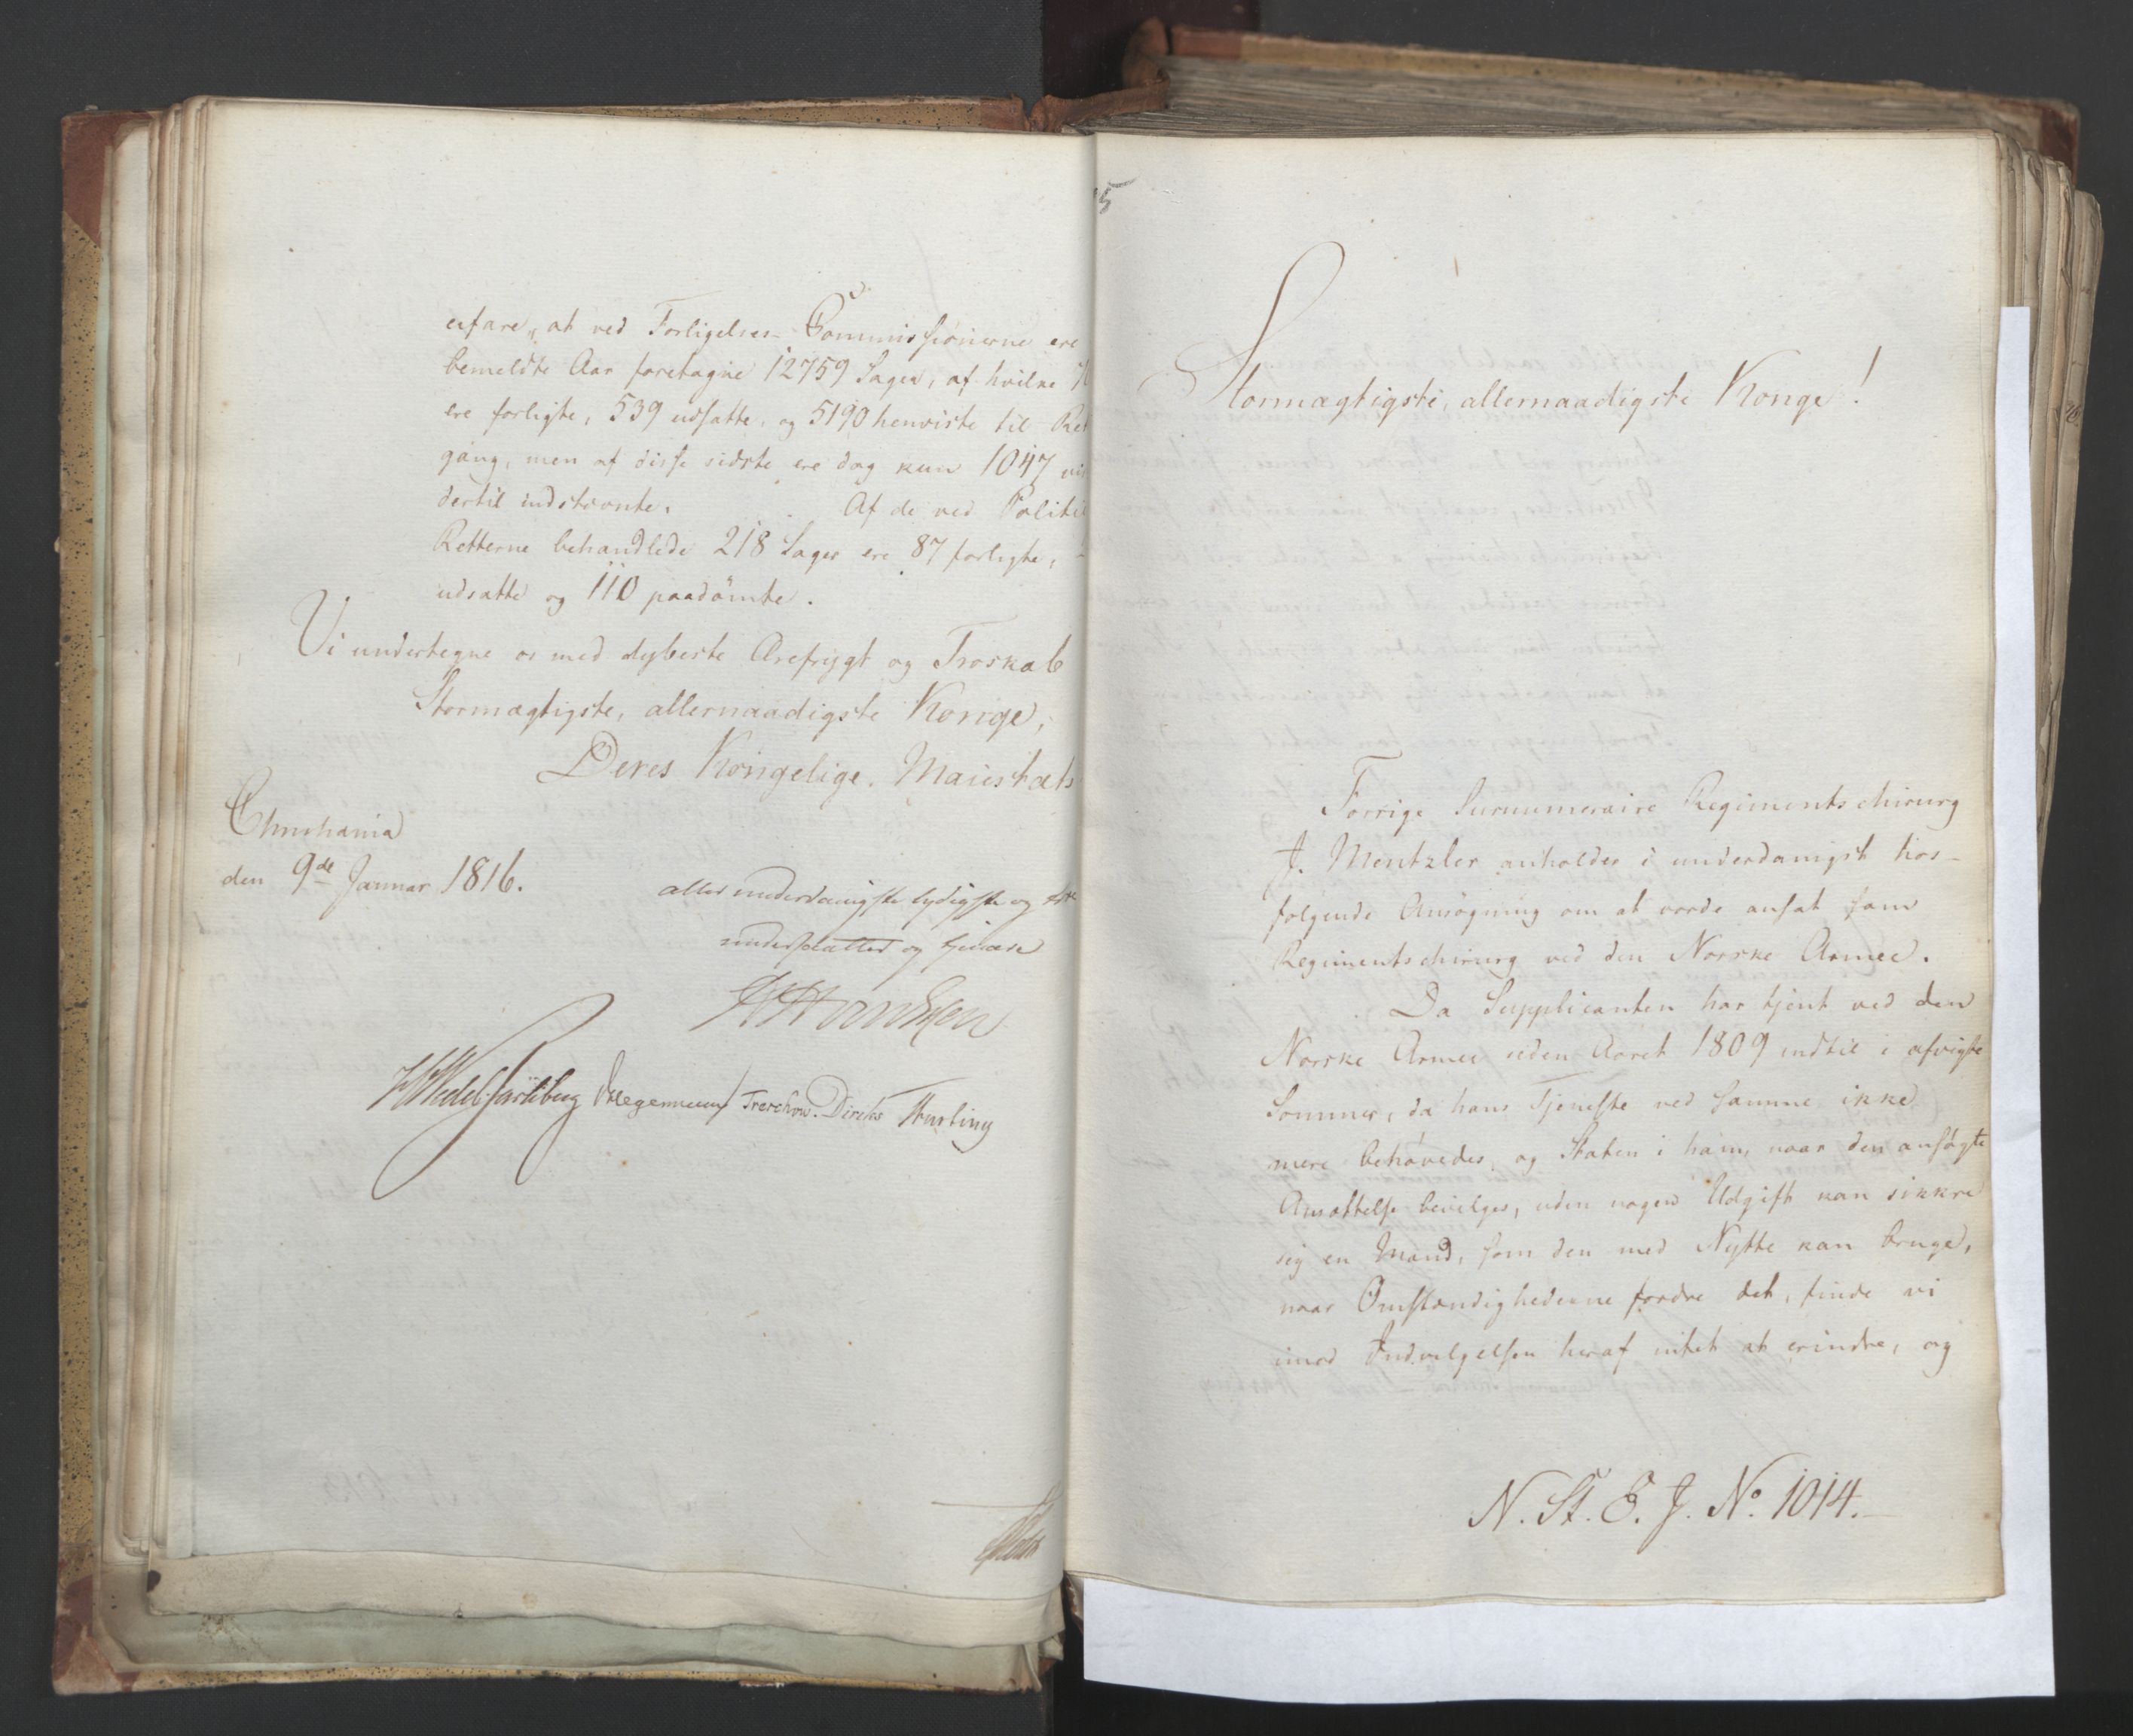 erfare, at ved Forligelses-Commissionerne ere
bemeldte Aar foretagne 12759 Sager, af hvilke
ere forligte, 539 udsatte, og 5190 henviste til Ret
gang, men af disse sidste ere dog kun 1047
dertil indstævnte. Af de ved Politie
Retterne behandlede 218 Sager ere 87 forligte,
udsatte og 110 paadömte.
Vi undertegne os med dybeste Ærefrygt og Troskab
Stormægtigste, allernaadigste Konge,
Deres Kongelige Maiestæts
Christiania
den 9de Januar 1816.
allerunderdanigste lydigste og
undersaatter og tjenere
Wedel Jarlsberg Treschow. Diriks
5
Stormægtigste, allernaadigste Konge!
Forrige Surnumeraire Regimentschirurg
J. Mentzler anholder i underdanigst hos-
følgende Ansögning om at vorde ansat som
Regimentschirurg ved den Norske Armee.
Da Supplicanten har tjent ved den
Norske Armee siden Aaret 1809 indtil i afvigte
Sommer, da hans Tjeneste ved samme ikke
mere behövedes, og Staten i ham, naar den ansögte
Ansættelse bevilges, uden nogen Udgift kan sikkre
sig en Mand, som den med Nytte kan bruge,
naar Omstændighederne fordre det, finde vi
imod Indvilgelsen heraf intet at erindre, og
N. St. E. J. No. 1014.